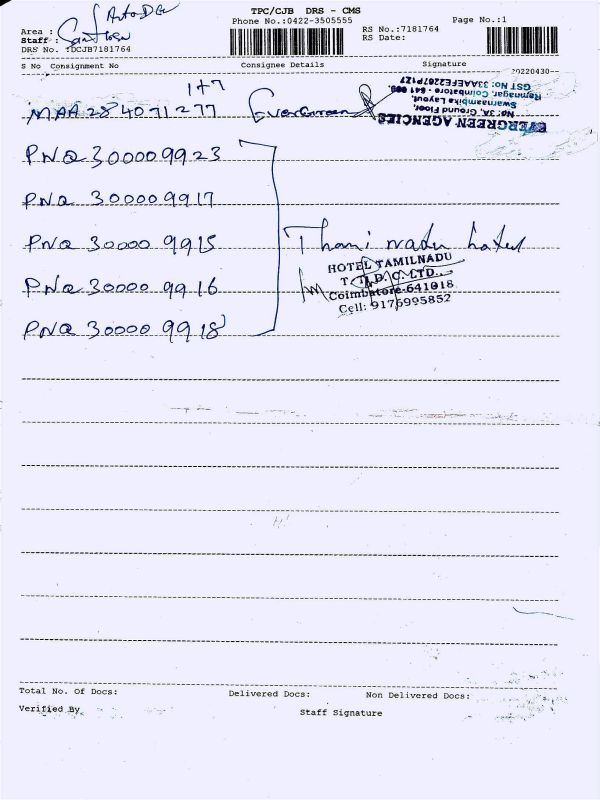 AutoDCr
TPC/CJB DRS - CMS
Phone No.:0422-3505555
Page No.:1
Area :
Staff : Santhosh
RS No.:7181764
RS Date:
DRS No. :DCJB7181764
S No Consignment No Consignee Details Signature
20220430
1+7
MAA 284071277 Evergreen
EVERGREEN AGENCIES
No: 3A, Ground Floor,
Swarnaambika Layout,
Ramnagar, Coimbatore - 641 009.
GST No: 33AAEFE2287P1Z7
PNQ 300009923
PNQ 300009917
PNQ 30000 9915 Thami nadu hotel
PNQ 30000 9916
PNQ 30000 9918
HOTEL TAMILNADU
T.T.D.C. LTD..
Coimbatore-641018
Cell: 9176995852
Total No. Of Docs: Delivered Docs: Non Delivered Docs:
Verified By Staff Signature